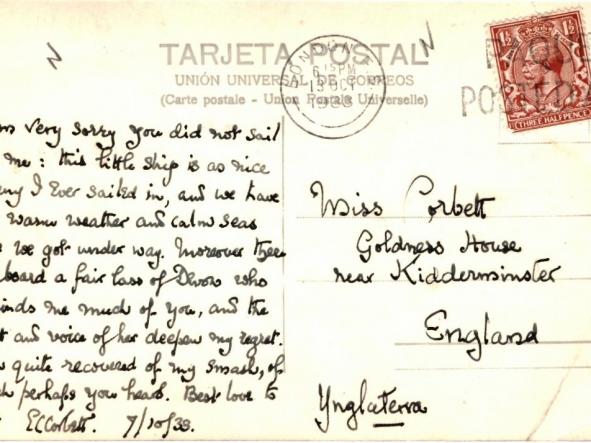 TARJETA POSTAL
UNIÓN UNIVERSAL DE CORREOS
(Carte postale - Union Postale Universelle)
LONDON
6 15 PM
13 OCT
1933
1½ 1½
THREE HALF PENCE
PAQU
POSTED
very sorry you did not sail
me : this little ship is as nice
any I Ever sailed in, and we have
warm weather and calm seas
we got under way. Moreover there
board a fair lass of Devon who
minds me much of you, and the
and voice of her deepen my regret.
quite recovered of my smash, of
perhaps you heard. Best love to
ECCorbett. 7/10/33.
Miss Corbett
Goldness House
near Kidderminster
England
Ynglaterra